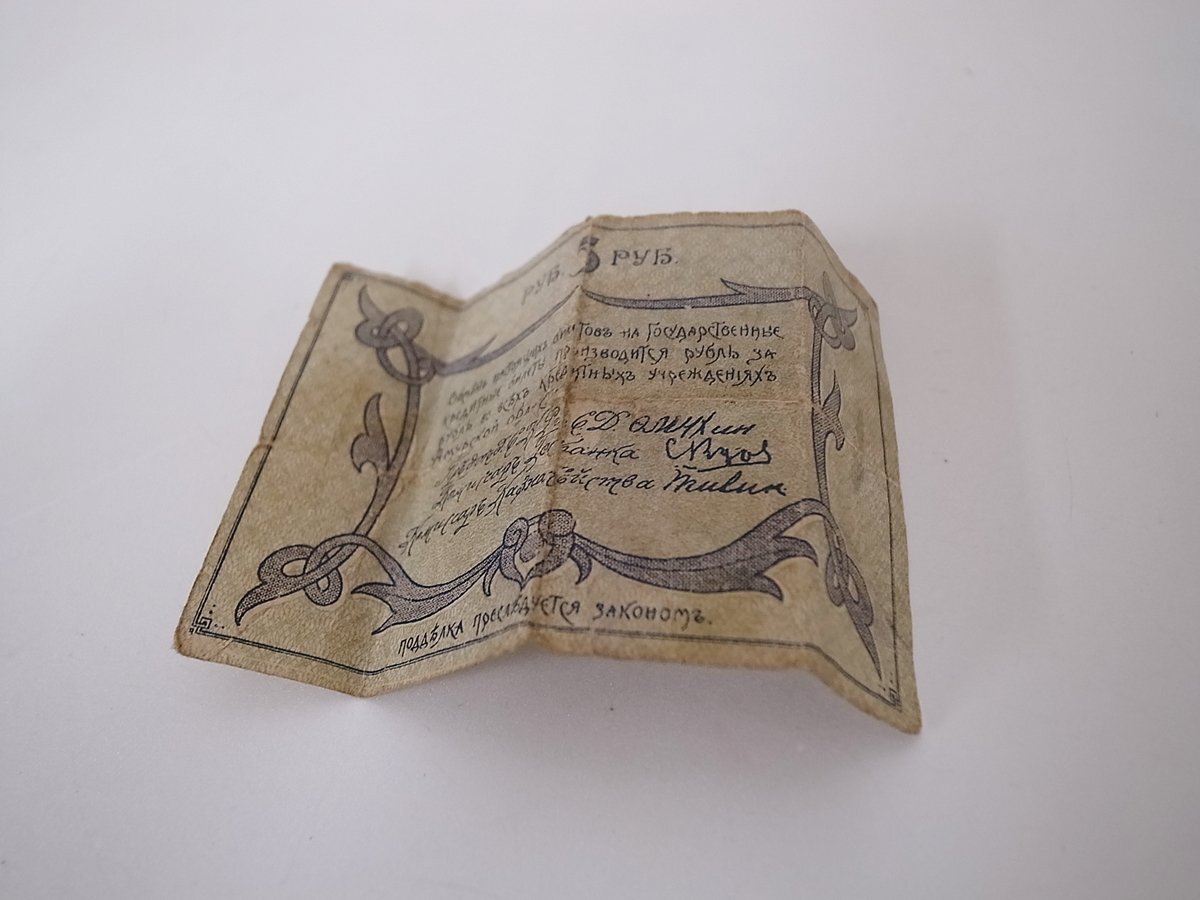 РУБ. 5 РУБ.
Обмѣнъ настоящихъ билетовъ на Государственные
кредитные билеты производится рубль за
рубль во всѣхъ кредитныхъ учрежденіяхъ
Амурской обл.
Предсѣд
Комиссаръ Госбанка
Комиссаръ Казначейства
ПОДДѢЛКА ПРЕСЛѢДУЕТСЯ ЗАКОНОМЪ.